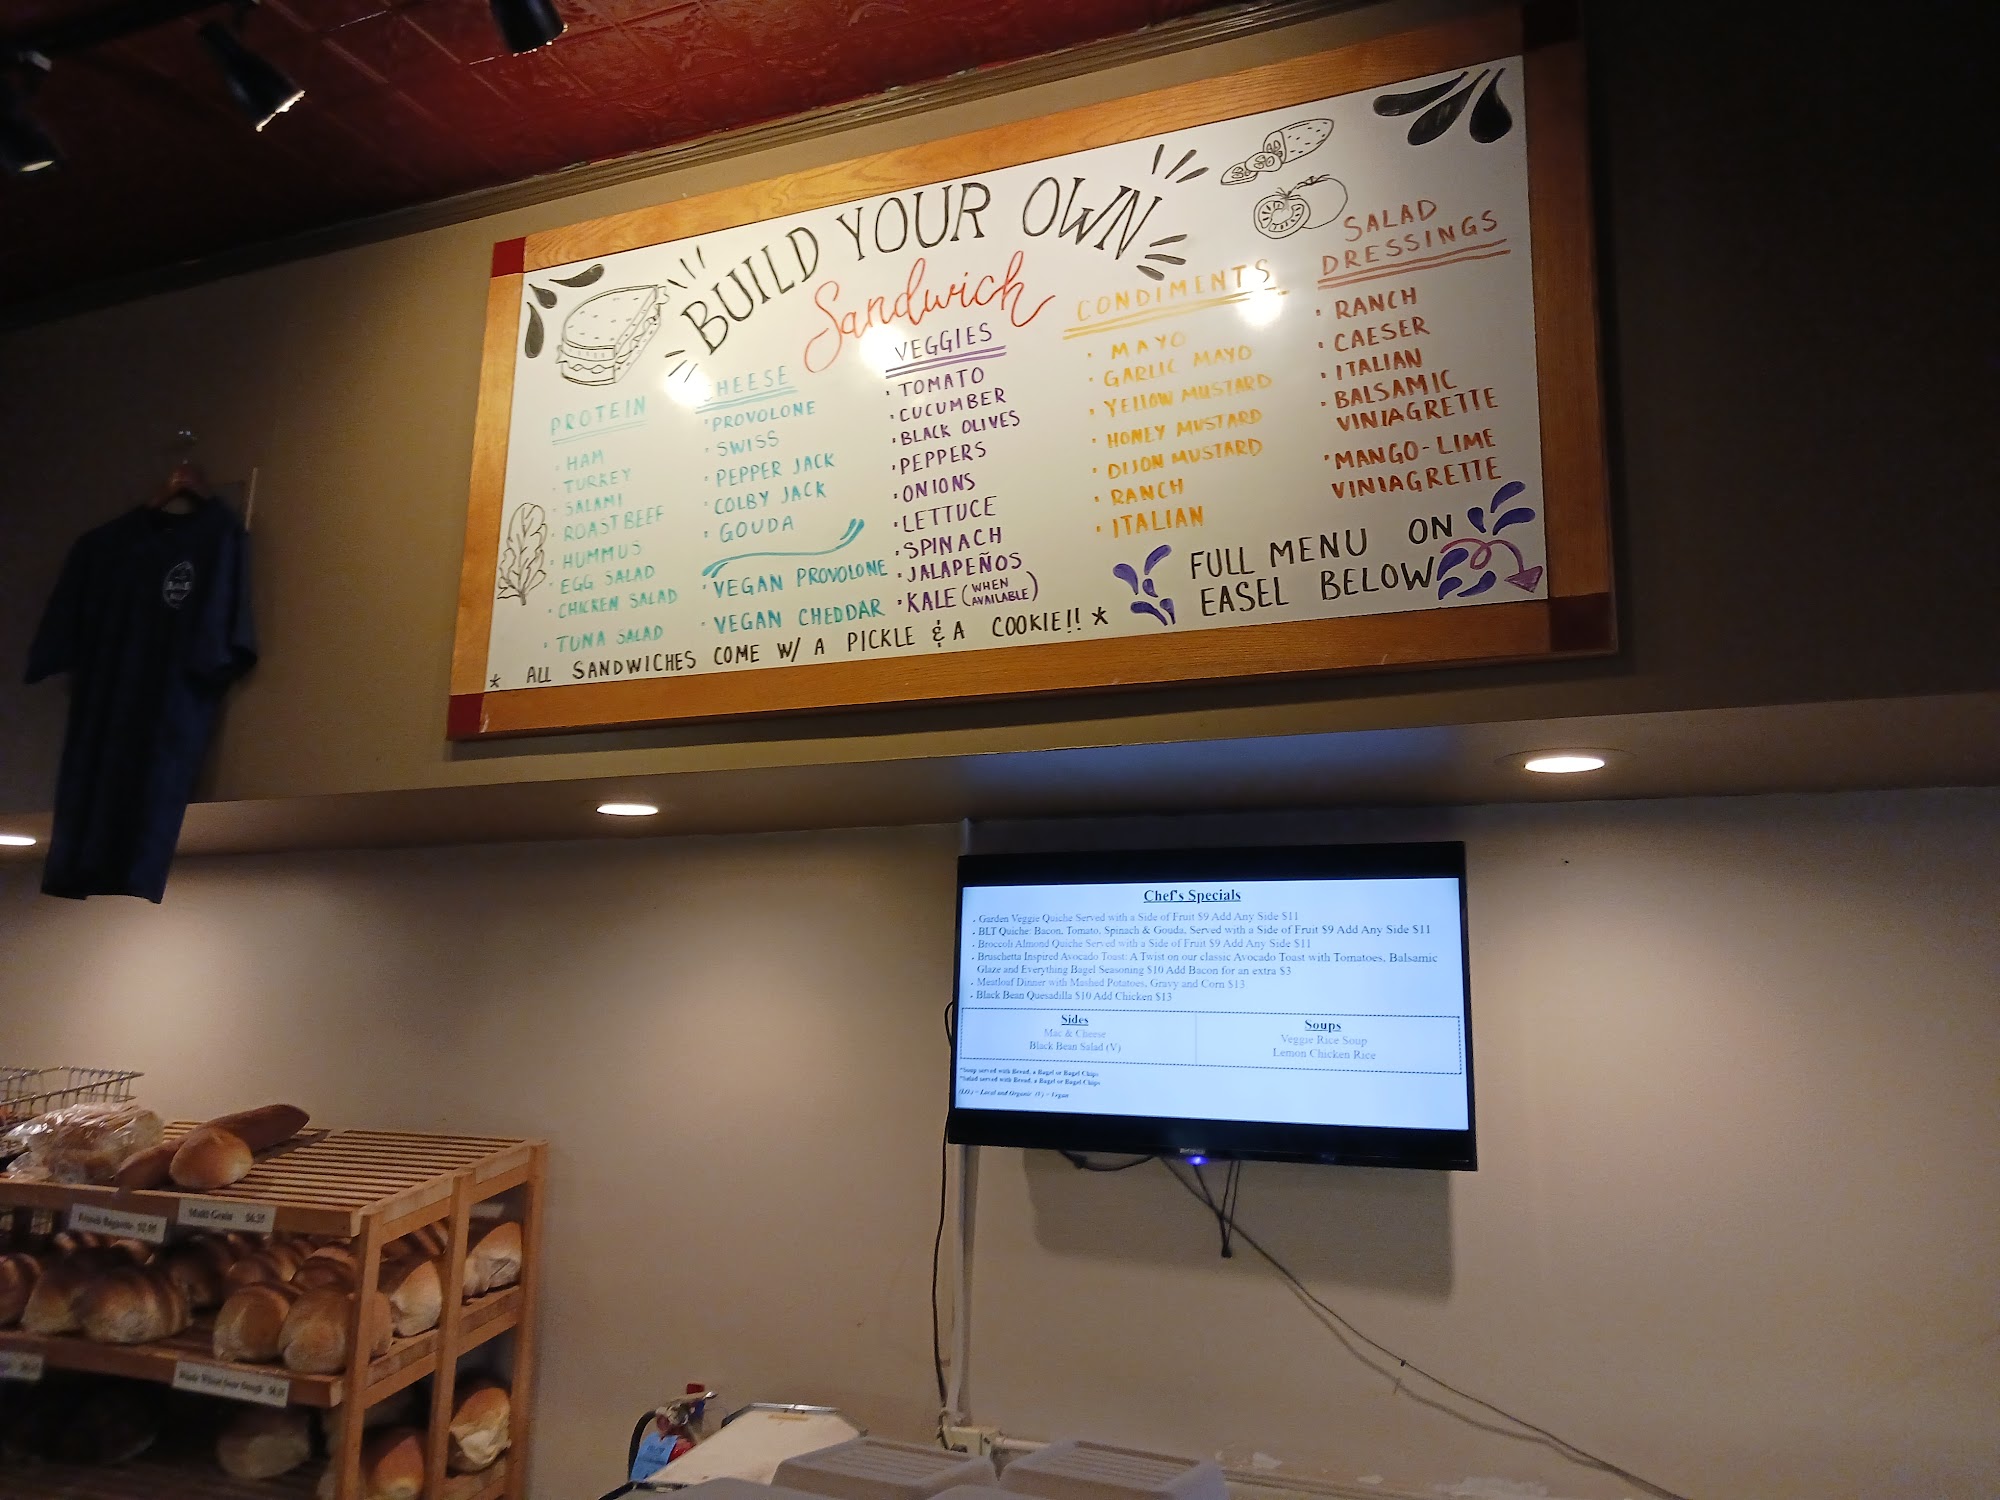 BUILD YOUR OWN
Sandwich
PROTEIN
· HAM
· TURKEY
· SALAMI
· ROAST BEEF
· HUMMUS
· EGG SALAD
· CHICKEN SALAD
· TUNA SALAD
CHEESE
· PROVOLONE
· SWISS
· PEPPER JACK
· COLBY JACK
· GOUDA
· VEGAN PROVOLONE
· VEGAN CHEDDAR
VEGGIES
· TOMATO
· CUCUMBER
· BLACK OLIVES
· PEPPERS
· ONIONS
· LETTUCE
· SPINACH
· JALAPEÑOS
· KALE (WHEN AVAILABLE)
CONDIMENTS
· MAYO
· GARLIC MAYO
· YELLOW MUSTARD
· HONEY MUSTARD
· DIJON MUSTARD
· RANCH
· ITALIAN
SALAD
DRESSINGS
· RANCH
· CAESER
· ITALIAN
· BALSAMIC
VINIAGRETTE
· MANGO-LIME
VINIAGRETTE
FULL MENU ON
EASEL BELOW
* ALL SANDWICHES COME W/ A PICKLE & A COOKIE!! *
Chef's Specials
• Garden Veggie Quiche Served with a Side of Fruit $9 Add Any Side $11
• BLT Quiche: Bacon, Tomato, Spinach & Gouda, Served with a Side of Fruit $9 Add Any Side $11
• Broccoli Almond Quiche Served with a Side of Fruit $9 Add Any Side $11
• Bruschetta Inspired Avocado Toast: A Twist on our classic Avocado Toast with Tomatoes, Balsamic
Glaze and Everything Bagel Seasoning $10 Add Bacon for an extra $3
• Meatloaf Dinner with Mashed Potatoes, Gravy and Corn $13
• Black Bean Quesadilla $10 Add Chicken $13
Sides
Mac & Cheese
Black Bean Salad (V)
Soups
Veggie Rice Soup
Lemon Chicken Rice
*Soup served with Bread, a Bagel or Bagel Chips
*Salad served with Bread, a Bagel or Bagel Chips
(LO) = Local and Organic (V) = Vegan
French Baguette $2.95
Multi Grain $6.25
Whole Wheat Sour Dough